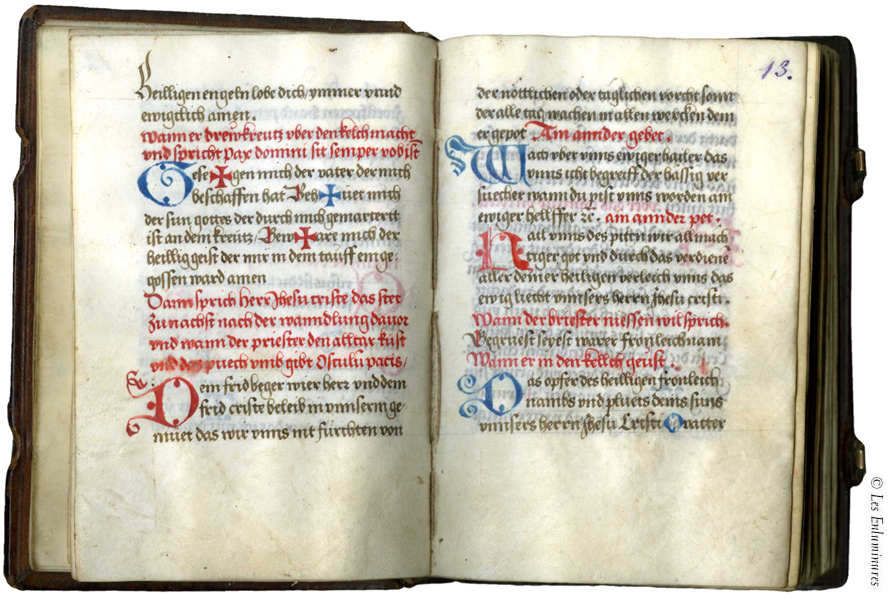 heilligen engeln lobe dich ymmer vnnd
ewigclich amen.
wann er drew kreutz vber den kelch macht
vnd spricht pax domini sit semper vobist
Gese✠gen mich der vater der mich
beschaffen hat Beh✠uet mich
der sun gottes der durch mich gemartertt
ist an dem kreutz Bew✠are mich der
heillig geist der mir in dem tauff ein ge
gossen ward amen
Dann sprich herr Jhesu criste das stet
zu nachst nach der wanndlung dauor
vnd wann der priester den alltar kust
vnd das puech vmb gibt Osculu pacis
Dem frid beger wier herz vnd dem
frid criste beleib in vnnserm ge
muet das wir vnns nit fürchten von
13.
der nöttlichen oder täglichen vorcht sonn
der alle tag wachen in allen wercken dein
er gepot. Am annder gebet.
Wach vber vnns ewiger hailer das
vnns icht begreiff der hässig ver
suecher wann du pist vnns worden ain
ewiger hellffer ꝛc. am annder pet.
Nail vnns des pittn wir allmäch
tiger got vnd durch das verdiene
aller deiner heiligen verleich vnns das
ewig liecht vnnsers herrn Jhesu cristi.
Wann der briester niessen wil sprich.
Begruest seyest warer fronleichnam
Wann er in den kellch geust.
Das opfer des heilligen fronleich
nambs vnd pluets deins suns
vnnsers herrn Jhesu Cristi O vatter
© Les Enluminures